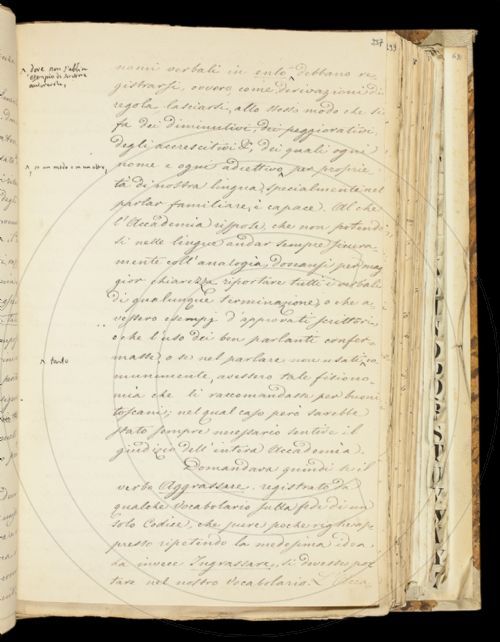 257 199
^ dove non s'abbia
esempio di scrittore
autorevole,
nomi verbali in ento ^ debbano re
gistrarsi, ovvero, come derivazioni di
regola lasciarsi, allo stesso modo che si
fa dei diminutivi, dei peggiorativi,
degli accrescitivi &, dei quali ogni
^, in un modo o in un altro,
nome e ogni adiettivo ^ per proprie
tà di nostra lingua, specialmente nel
parlar familiare, è capace. Al che
l'Accademia rispose, che non potendo
si nelle lingue andar sempre sicura
mente coll'analogia, doveansi per mag
gior chiarezza riportare tutti i verbali
di qualunque terminazione, o che a
vessero esempj d'approvati scrittori,
e che l'uso dei ben parlanti confer
^ tanto
masse, o se nel parlare non usati ^ co
munemente, avessero tale fisiono-
mia che li raccomandasse per buoni
toscani; nel qual caso però sarebbe
stato sempre necessario sentire il
giudizio dell'intera Accademia.
Domandava quindi se il
verbo Aggrassare, registrato da
qualche Vocabolario sulla fede di un
solo Codice, che pure poche righe ap
presso ripetendo la medesima idea,
ha invece Ingrassare, si dovesse por
tare nel nostro Vocabolario.